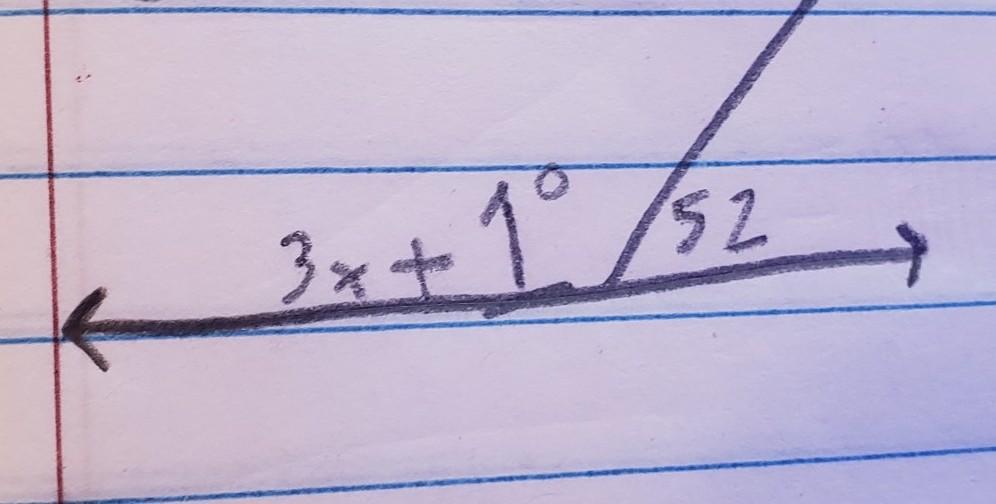 3x + 1° 52